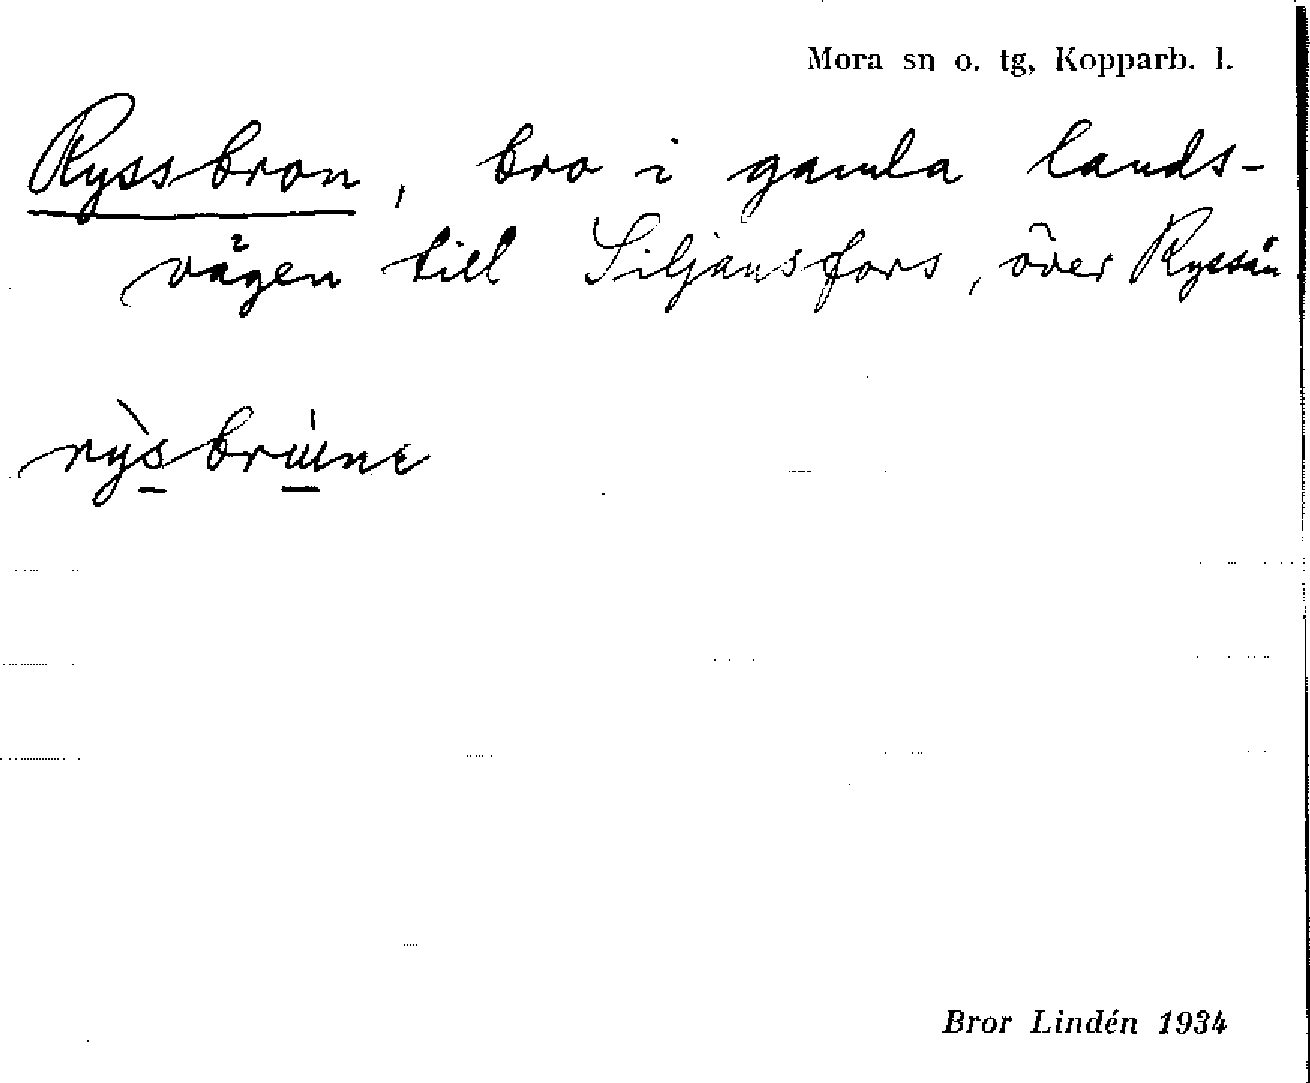 Mora sn o. tg, Kopparb. l.
Ryssbron, bro i gamla lands-
vägen till Siljansfors, över Ryssån
Bror Lindén 1934